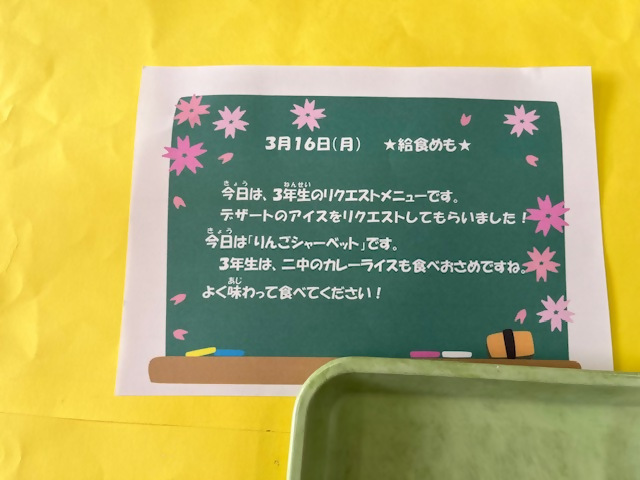 3月16日(月) ★給食めも★
今日は、3年生のリクエストメニューです。
デザートのアイスをリクエストしてもらいました!
今日は「りんごシャーベット」です。
3年生は、二中のカレーライスも食べおさめですね。
よく味わって食べてください!